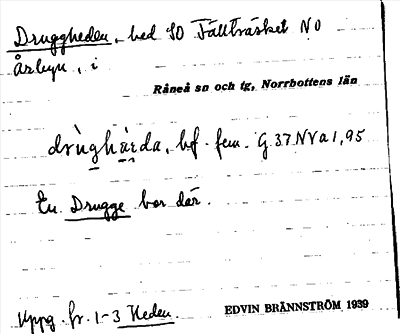 Druggheden, hed SO Fällträsket NO
Årbyn, i
Råneå sn och tg, Norrbottens län
drùghæ̀rda, bf. fem. G. 37 NVa 1,95
En Drugge bor där.
Uppg. fr. 1-3 Heden.
EDVIN BRÄNNSTRÖM 1939